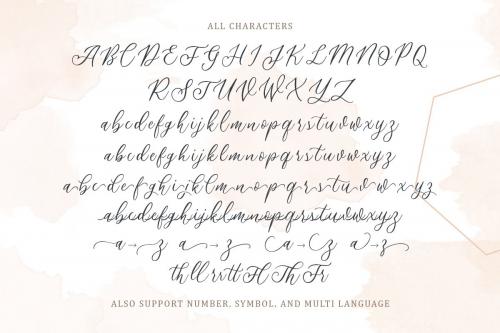 ALL CHARACTERS
ABCDEFGHIJKLMNOPQ
RSTUVWXYZ
abcdefghijklmnopqrstuvwxyz
abcdefghijklmnopqrstuvwxyz
abcdefghijklmnopqrstuvwxyz
abcdefghijklmnopqrstuvwxyz
a-z a-z Ca-Cz a-z
th ll rr tt H Th Fr
ALSO SUPPORT NUMBER, SYMBOL, AND MULTI LANGUAGE